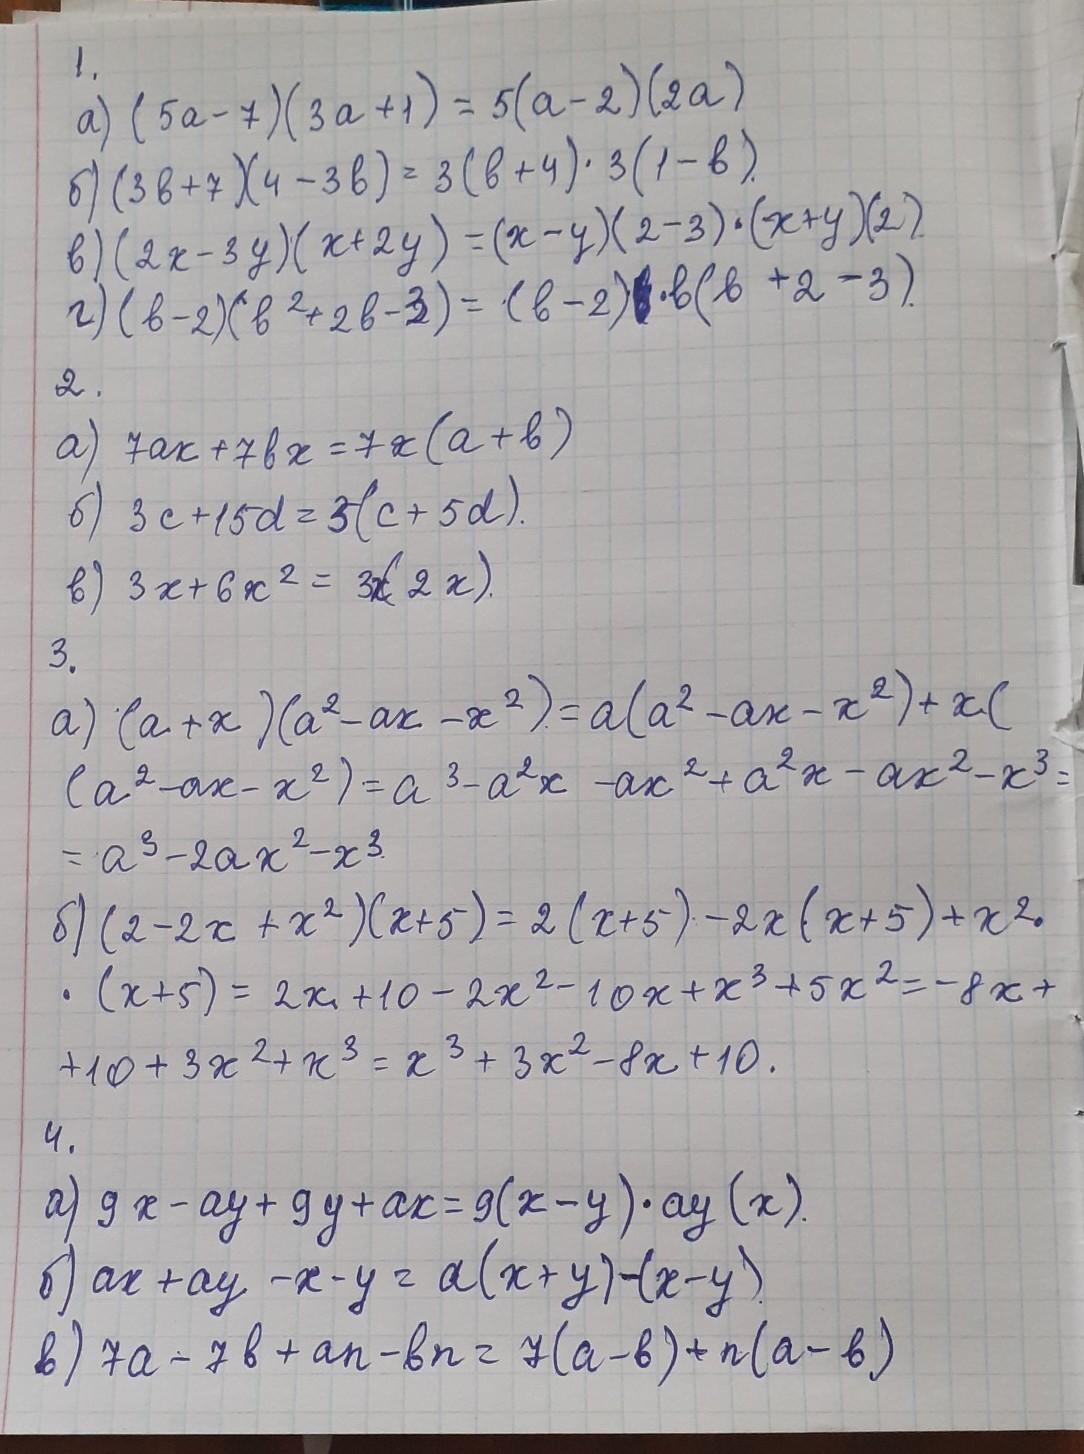 1.
а) (5a-7)(3a+1) = 5(a-2)(2a)
б) (3b+7)(4-3b) = 3(b+4)·3(1-b).
в) (2x-3y)(x+2y) = (x-y)(2-3)·(x+y)(2).
г) (b-2)(b²+2b-3) = (b-2)·b(b+2-3).
2.
а) 7ax+7bx=7x(a+b)
б) 3c+15d=3(c+5d).
в) 3x+6x² = 3x(2x).
3.
а) (a+x)(a²-ax-x²)=a(a²-ax-x²)+x(
(a²-ax-x²)=a³-a²x-ax²+a²x-ax²-x³=
=a³-2ax²-x³.
б) (2-2x+x²)(x+5)=2(x+5)-2x(x+5)+x²·
·(x+5)=2x+10-2x²-10x+x³+5x²=-8x+
+10+3x²+x³=x³+3x²-8x+10.
4.
а) 9x-ay+9y+ax=9(x-y)·ay(x).
б) ax+ay-x-y=a(x+y)-(x-y).
в) 7a-7b+an-bn=7(a-b)+n(a-b)